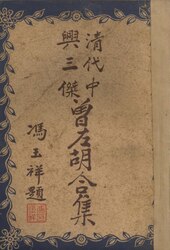 清代中
興三傑
曾左胡合集
馮玉祥題